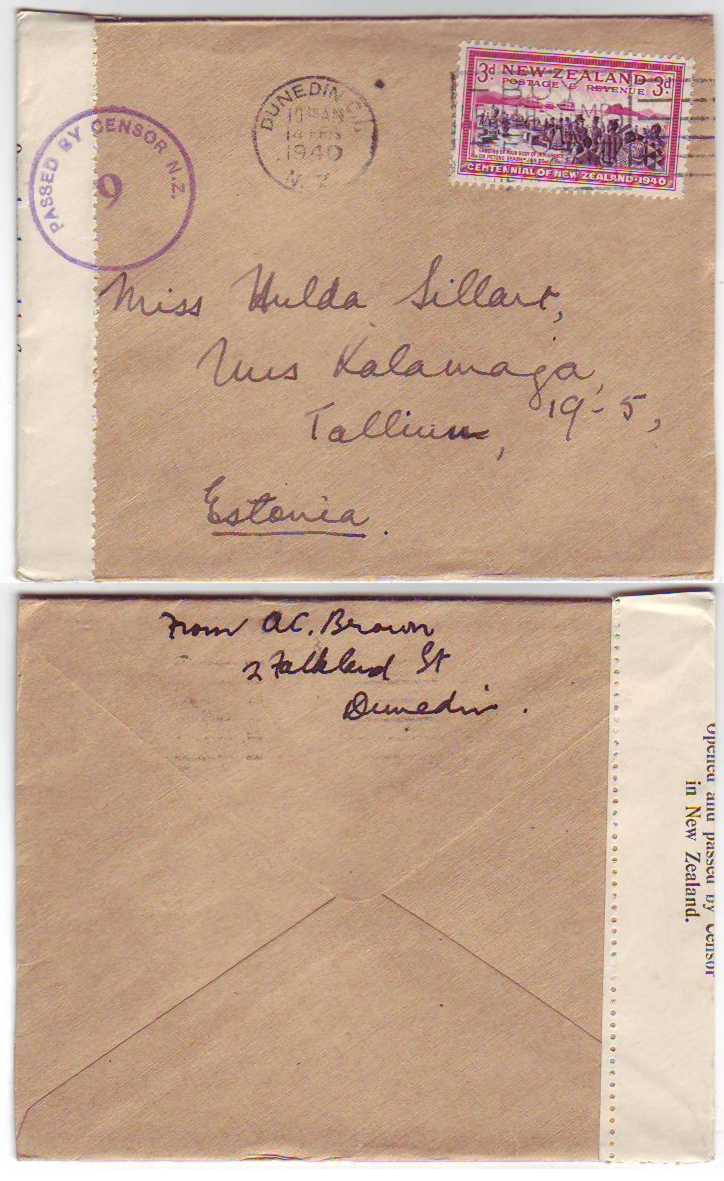 PASSED BY CENSOR N.Z.
9
DUNEDIN
14
1940
N.Z.
3d NEW ZEALAND 3d
POSTAGE & REVENUE
CENTENNIAL OF NEW ZEALAND · 1940
Miss Hulda Sillart,
Uus Kalamaja,
19-5,
Tallium,
Estonia.
From A.C. Brown
2 Falkland St
Dunedin.
Opened and passed by Censor
in New Zealand.